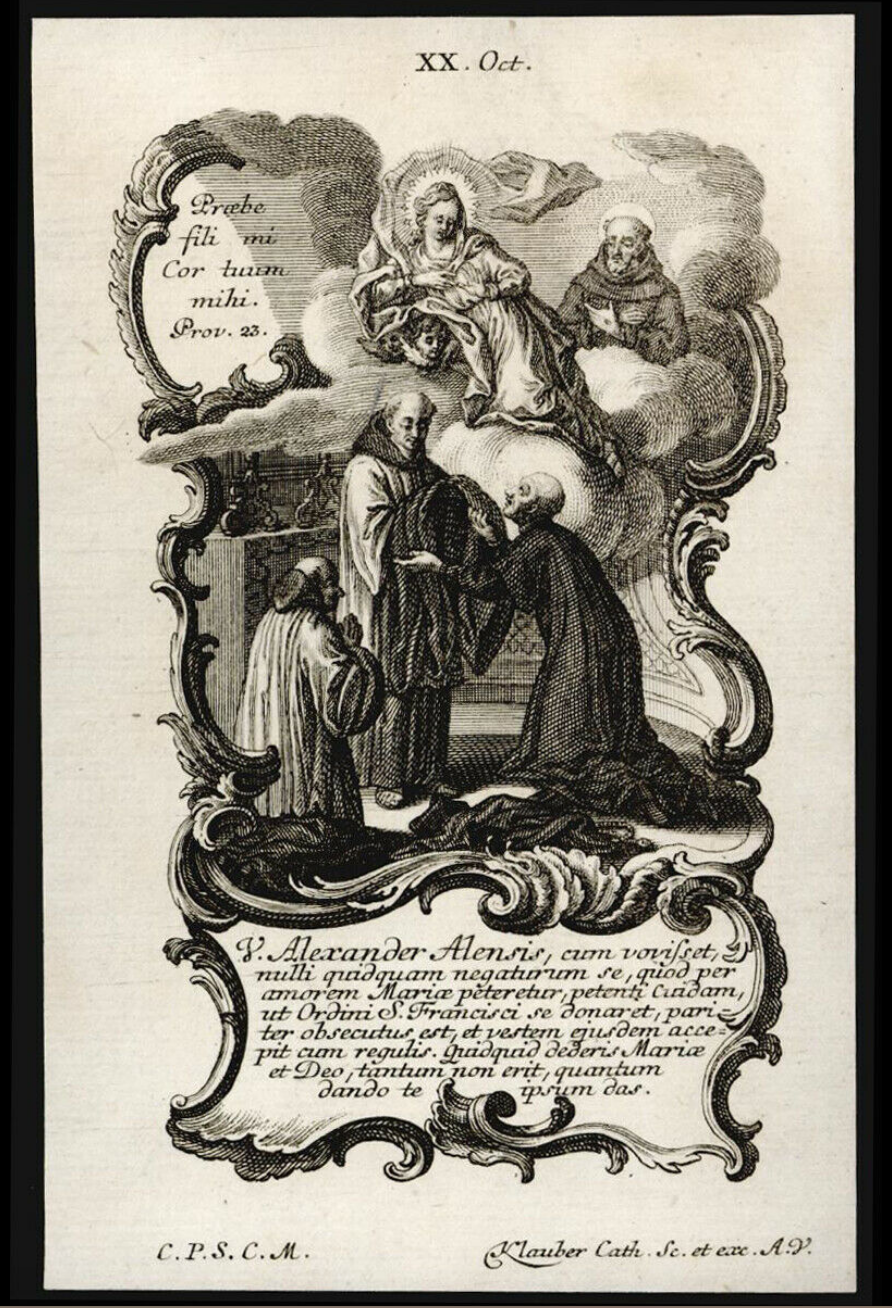 XX. Oct.
Præbe
fili mi
Cor tuum
mihi.
Prov. 23.
V. Alexander Alensis, cum vovisset,
nulli quidquam negaturum se, quod per
amorem Mariæ peteretur, petenti cuidam,
ut Ordini S. Francisci se donaret, pari=
ter obsecutus est, et vestem ejusdem acce=
pit cum regulis. Quidquid dederis Mariæ
et Deo, tantum non erit, quantum
dando te ipsum das.
C. P. S. C. M.
Klauber Cath. Sc. et exc. A.V.